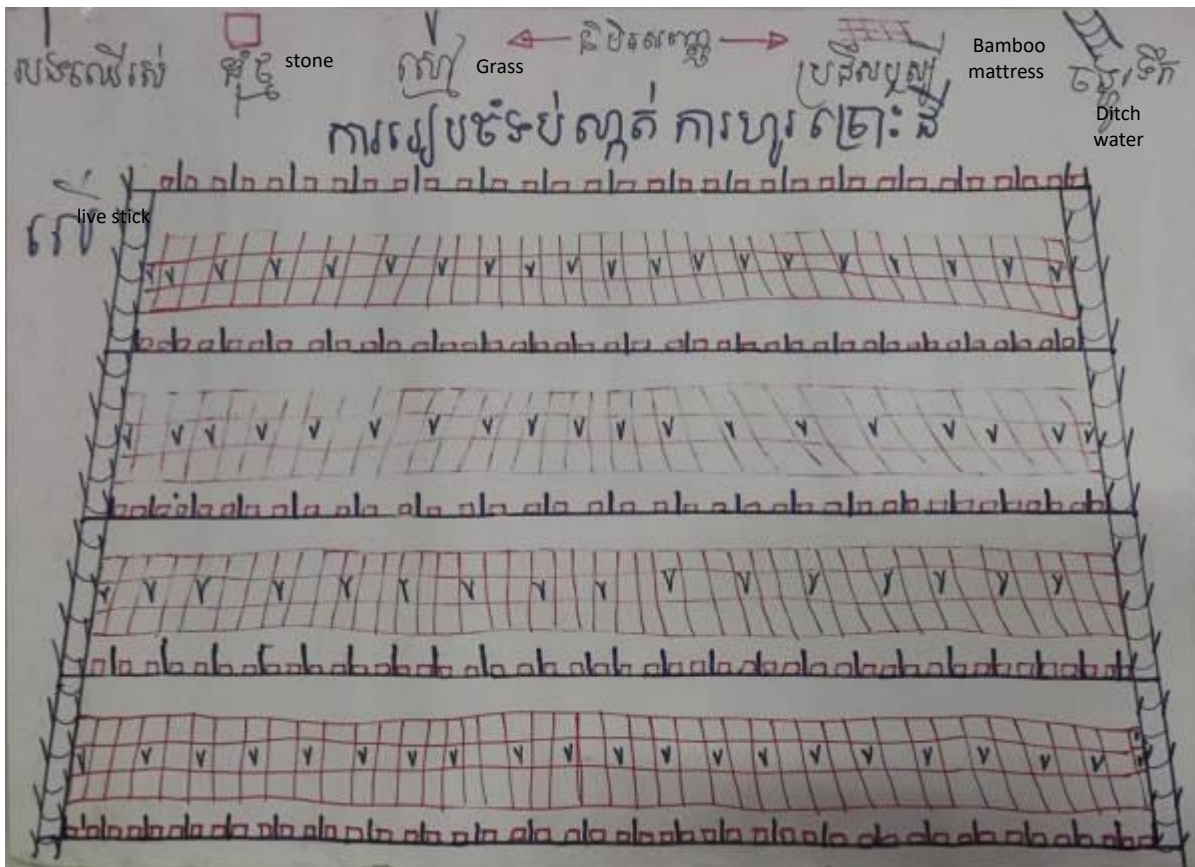 របងឈើរស់
ដុំថ្ម
stone
ស្មៅ
Grass
និមិត្តសញ្ញា
ប្រដឹសឫស្សី
Bamboo
mattress
ចង្អូរទឹក
Ditch
water
ការរៀបចំទប់ស្កាត់ ការហូរច្រោះដី
លើ
live stick